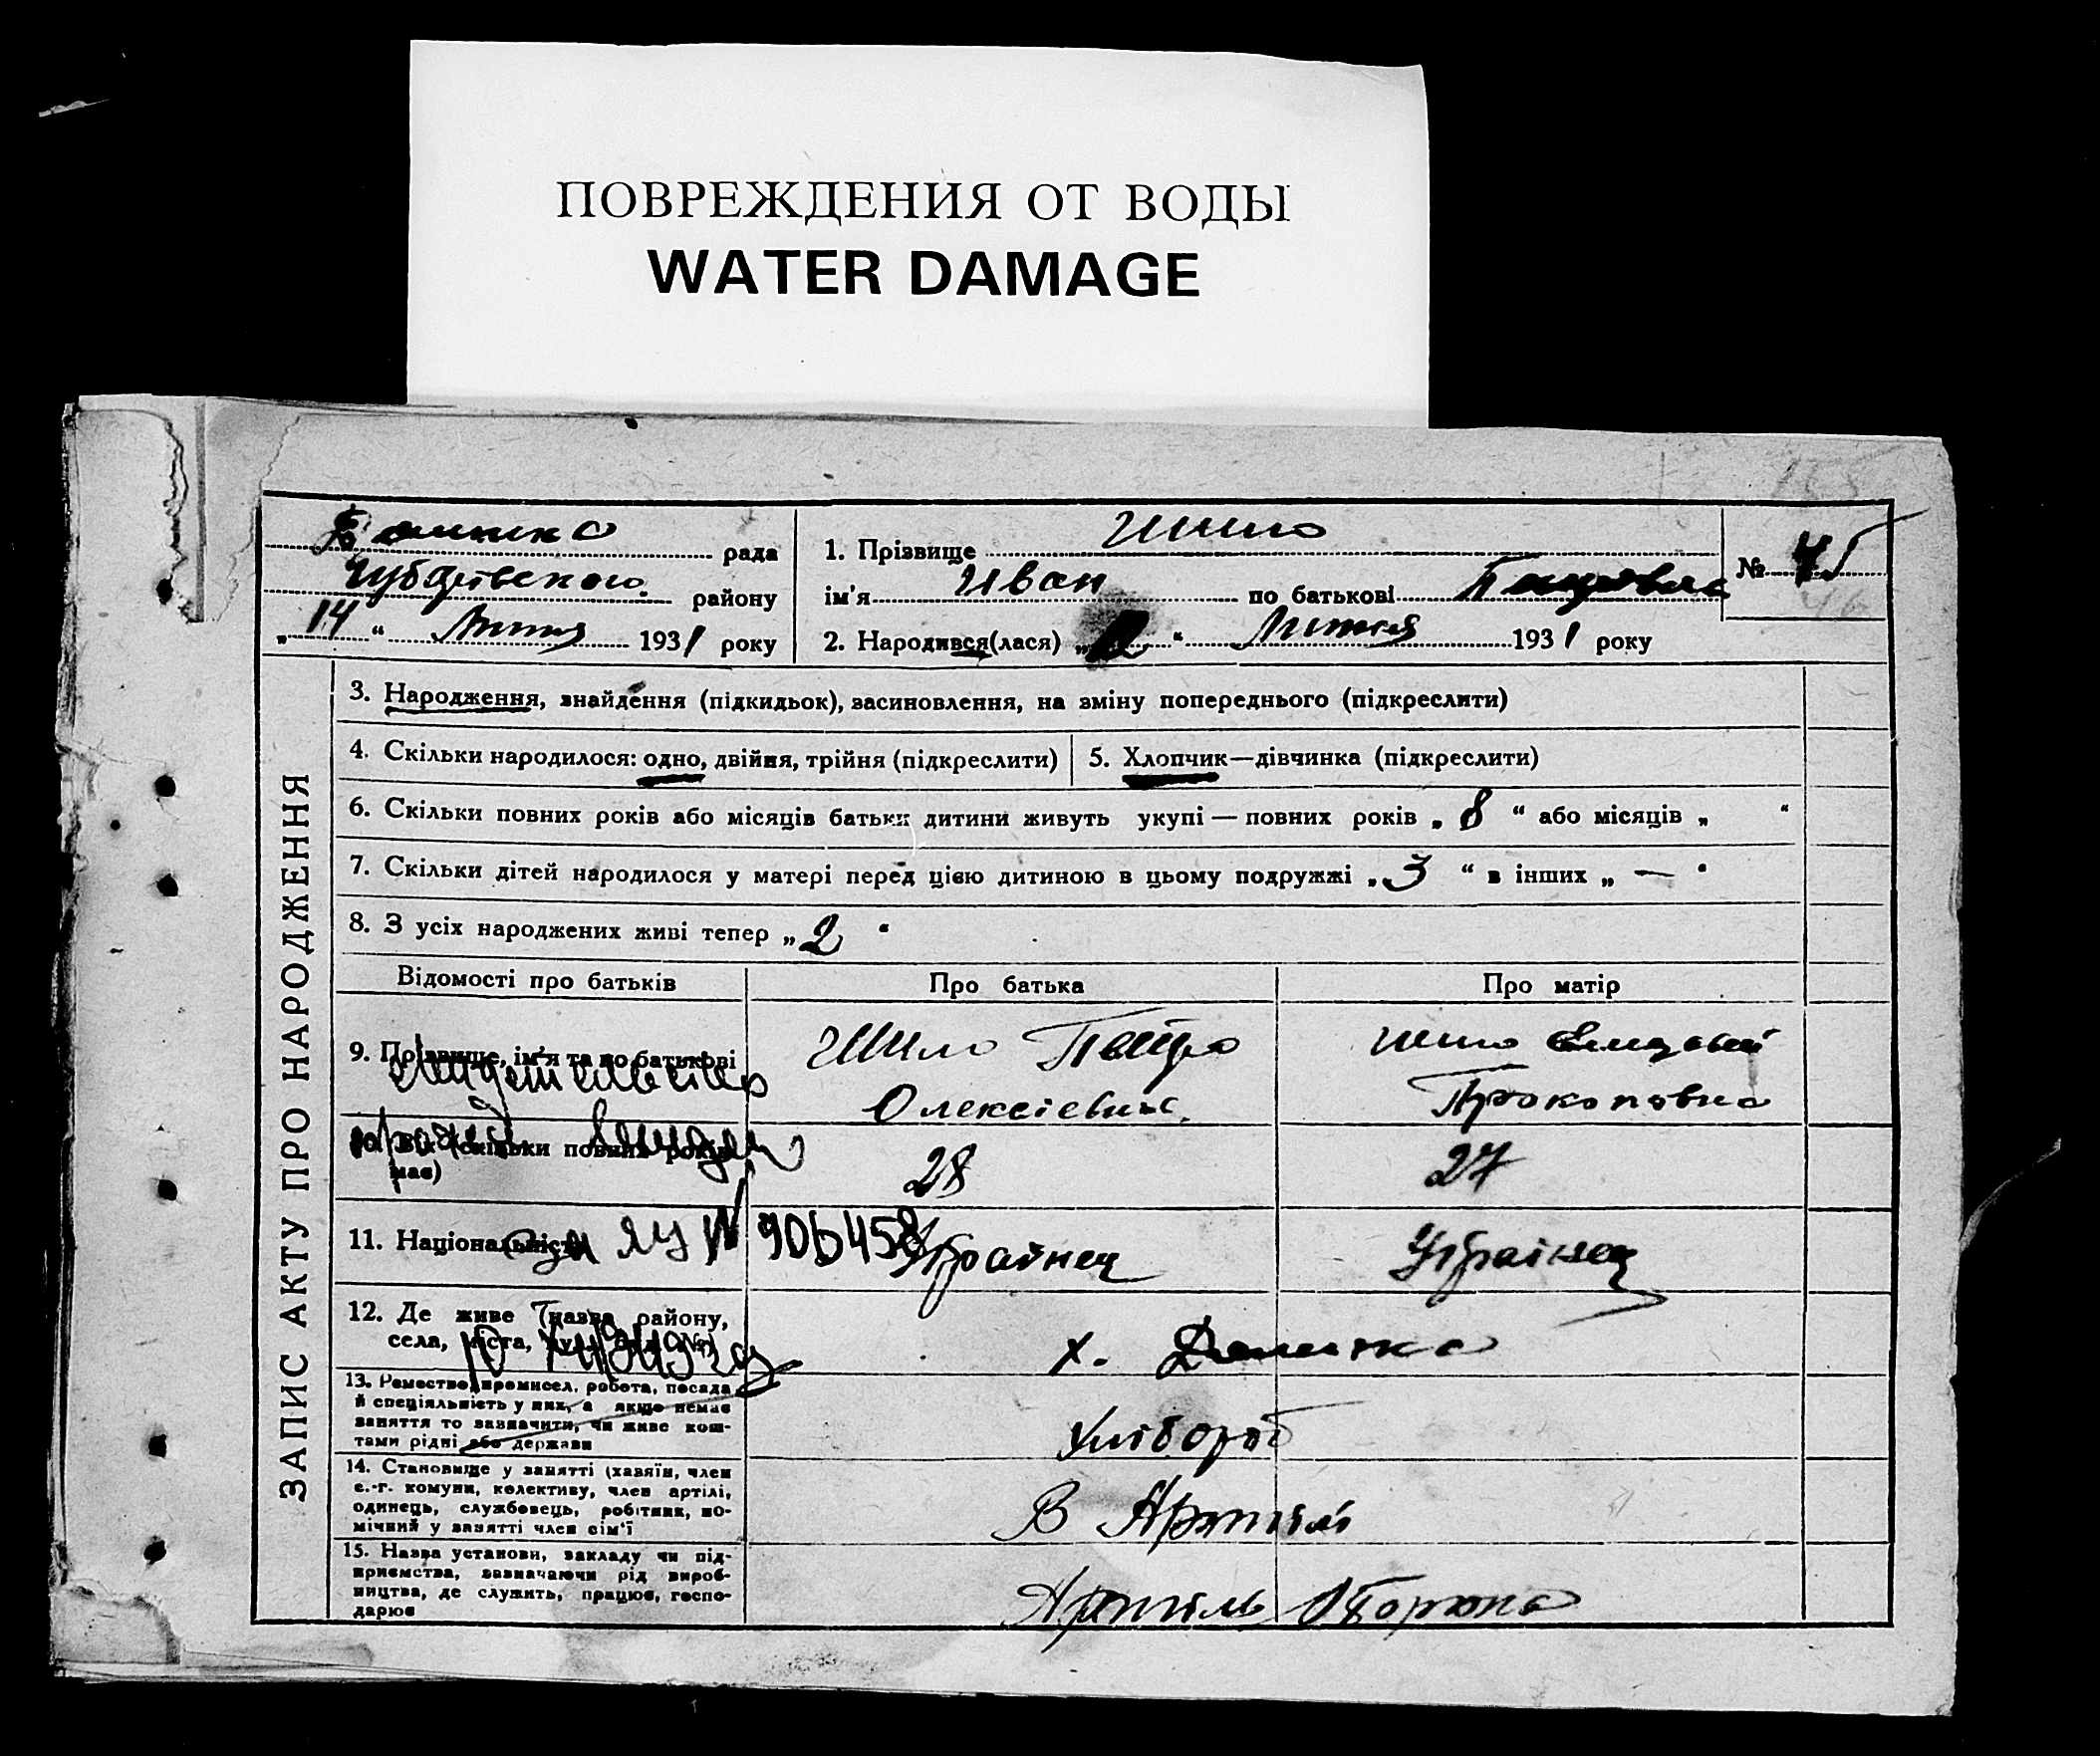 ПОВРЕЖДЕНИЯ ОТ ВОДЫ
WATER DAMAGE
рада
району
„ 14 “ Липня 1931 року
1. Прізвище Шило
ім'я Иван по батькові
2. Народився(лася) „ “ Липня 1931 року
№ 45
ЗАПИС АКТУ ПРО НАРОДЖЕННЯ
3. Народження, знайдення (підкидьок), засиновлення, на зміну попереднього (підкреслити)
4. Скільки народилося: одно, двійня, трійня (підкреслити)
5. Хлопчик—дівчинка (підкреслити)
6. Скільки повних років або місяців батьки дитини живуть укупі — повних років „ 8 “ або місяців „ “
7. Скільки дітей народилося у матері перед цією дитиною в цьому подружжі „ 3 “ в інших „ — “
8. З усіх народжених живі тепер „ 2 “
Відомості про батьків Про батька Про матір
9. Прізвище, ім'я та по батькові
Шило Петро
Олексієвич
Шило
Прокоповна
10. Вік (скільки повних років має)
28 27
11. Національність
906458
Українец Українец
12. Де живе (назва району,
села, міста,
х.
13. Ремество, промисел, робота, посада
й спеціяльність у них, а якщо немає
заняття то зазначити, чи живе кош-
тами рідні або держави
Хлібороб
14. Становище у занятті (хазяїн, член
с.-г. комуни, колективу, член артілі,
одинець, службовець, робітник, по-
мічний у занятті член сім'ї
В Артілі
15. Назва установи, закладу чи під-
приємства, зазначаючи рід вироб-
ництва, де служить, працює, госпо-
дарює
Артіль